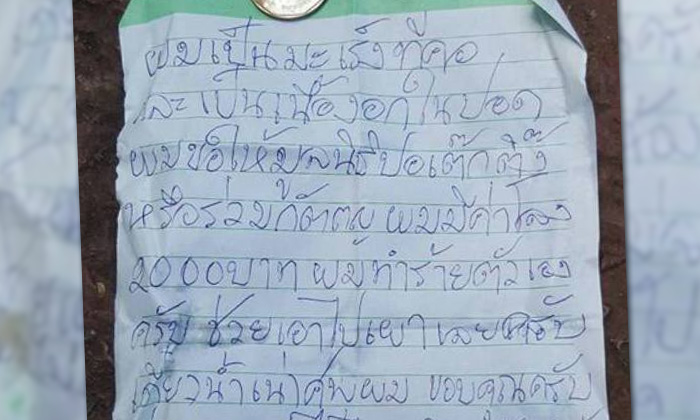 ผมเป็นมะเร็งที่คอ
และเป็นเนื้องอกในปอด
ผมขอให้มูลนิธิปอเต๊กตึ๊ง
หรือร่วมกตัญญู ผมมีค่าโลง
2000บาท ผมทำร้ายตัวเอง
ครับ ช่วยเอาไปเผาเลยครับ
เดี๋ยวน้ำเน่าศพผม ขอบคุณครับ